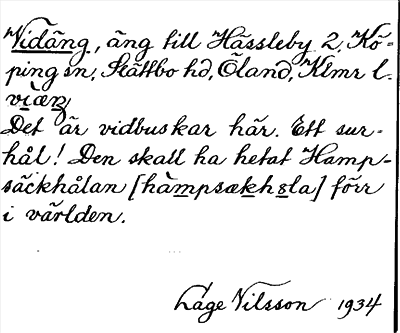 Vidäng, äng till Hässleby 2, Kö-
ping sn, Slättbo hd, Öland, Klmr l.
vìæŋ
Det är vidbuskar här. Ett sur-
hål! Den skall ha hetat Hamp-
säckhålan [hàmpsækhɔla] förr
i världen.
Låge Nilsson 1934